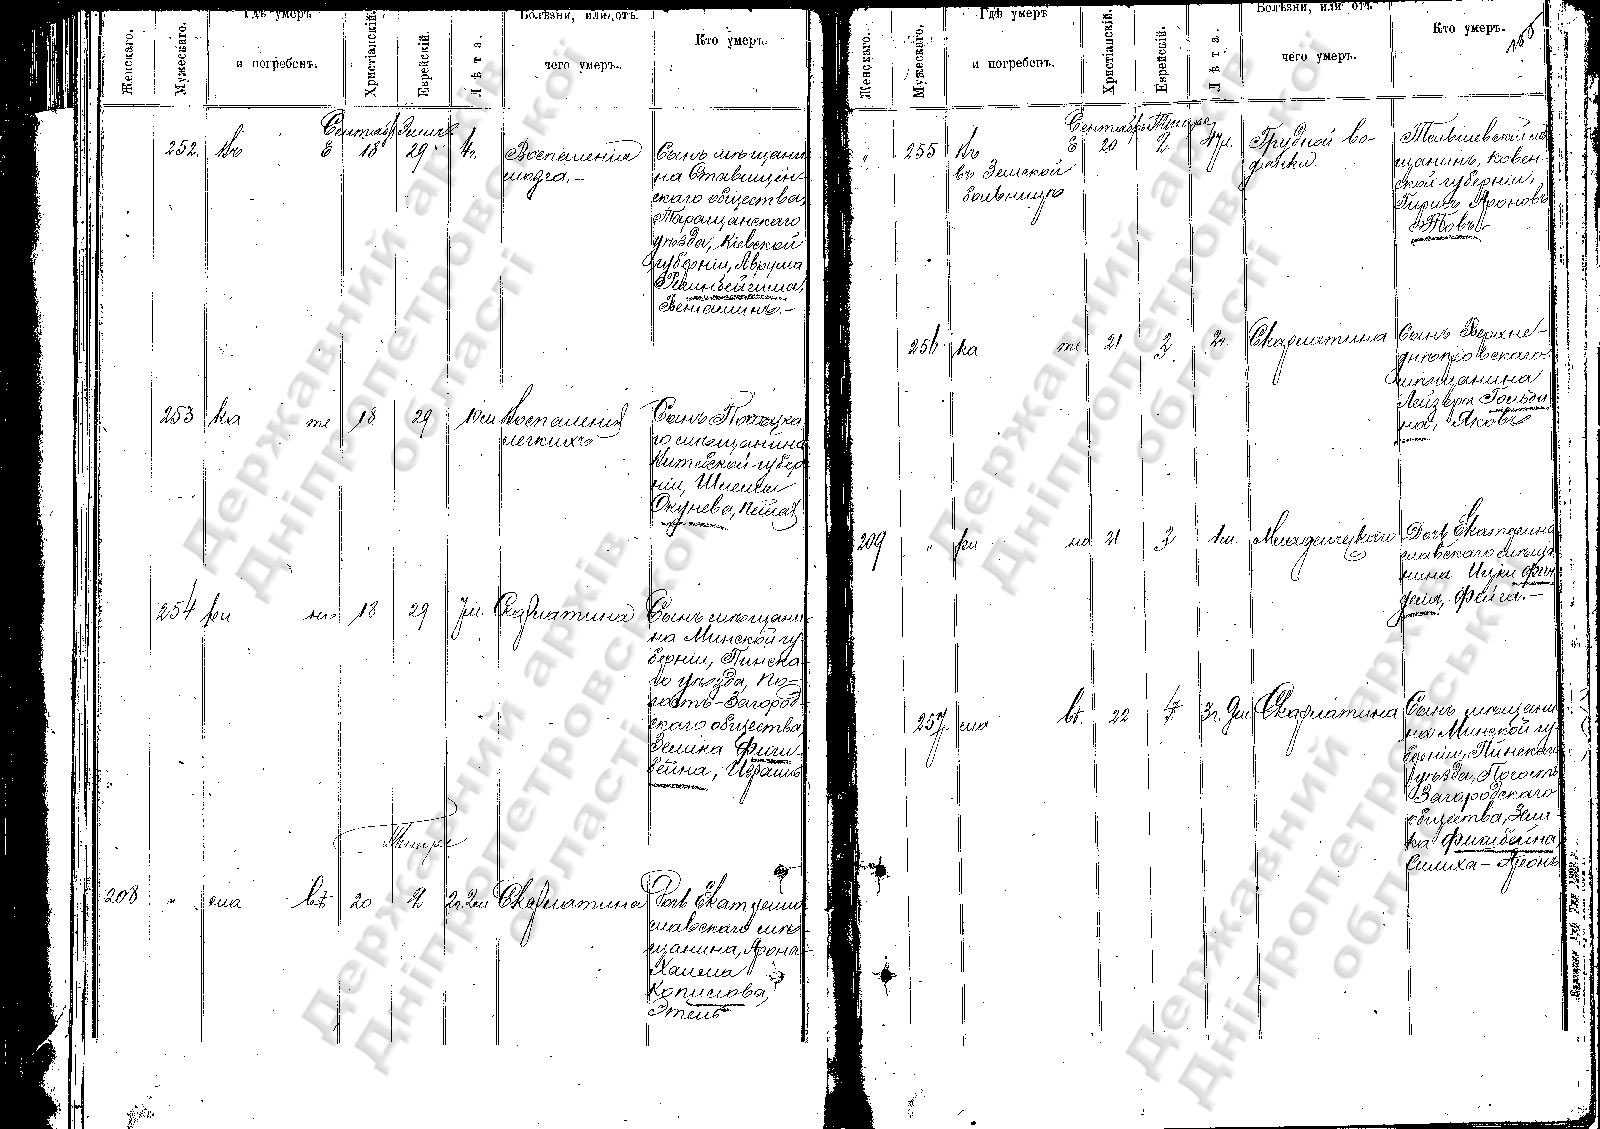 Женскаго.
Мужескаго.
Гдѣ умеръ
и погребенъ.
Христіанскій.
Еврейскій.
Лѣта.
Болѣзни, или отъ
чего умеръ.
Кто умеръ.
Сентябр
252. Въ Е 18 29 4г. Воспаленія
мозга.—
Сынъ мѣщани
на Ставищен-
скаго общества,
Таращанскаго
уѣзда, Кіевской
губерніи, Аврума
Веніаминъ.—
253 ка те 18 29 10м Воспаленія
легкихъ
Сынъ
го мѣщанина
Витебской губер
ніи, Шлемы
Окунева,
254 ри но 18 29 7м. Скарлатина
Сынъ мѣщани-
на Минской гу-
берніи, Пинска-
го уѣзда, По-
гостъ-Загород-
скаго общества,
Зелика Фиш-
бейна, Израиль
Тишре
208 " сла вѣ 20 2 2г.2м Скарлатина
Дочь Екатерино
славскаго мѣ-
щанина, Арона-
Хаима
Копилова,
Этель
Женскаго.
Мужескаго.
Гдѣ умеръ
и погребенъ.
Христіанскій.
Еврейскій.
Лѣта.
Болѣзни, или отъ
чего умеръ.
Кто умеръ.
Сентябрь Тишре
" 255 Въ Е 20 2 47л. Грудной во-
дянки
въ Земской
больницѣ
Тельшевской мѣ
щанинъ, Ковен-
ской губерніи,
Гиршъ Ароновъ
256 ка те 21 3 2г. Скарлатина
Сынъ Верхне-
днѣпровскаго
мѣщанина
Лейзера Гольди
на, Яковъ
209 " ри но 21 3 1м. Младенческой
Дочь Екатерино
славскаго мѣща
нина Ицки Фин
келя, Фейга.—
257 сла вѣ. 22 4 3г. 9м. Скарлатина
Сынъ мѣщани
на Минской гу-
берніи, Пинскаго
уѣзда, Погостъ
Загородскаго
общества, Зели-
ка Фишбейна,
Симха-Аронъ
Державний архів
Дніпропетровської
області